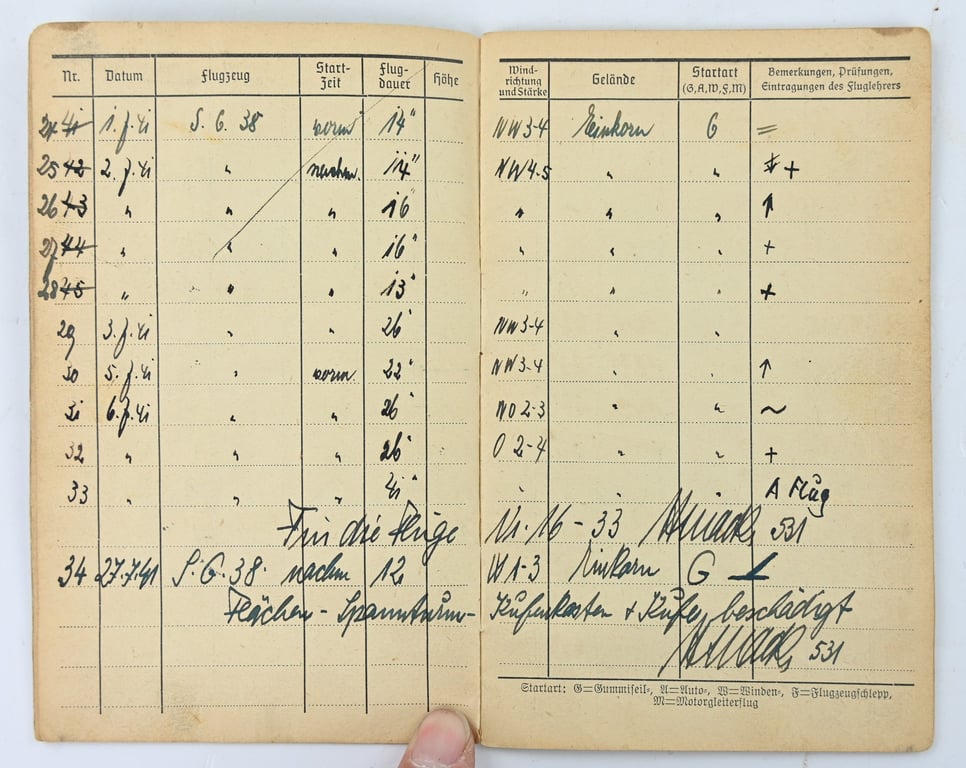 Nr. Datum Flugzeug Start-Zeit Flug-dauer Höhe Wind-richtung und Stärke Gelände Startart (G,A,W,F,M) Bemerkungen, Prüfungen, Eintragungen des Fluglehrers
24 41 1.7.41 S.G. 38 vorm 14" NW 3-4 Einkorn G =
25 42 2.7.41 " nachm. 14" NW 4-5 " " +
26 43 " " " 16" " " " ↑
27 44 " " " 16" " " " +
28 45 " " " 13" " " " +
29 3.7.41 " " 26" NW 3-4 " "
30 5.7.41 " vorm. 22" NW 3-4 " " ↑
31 6.7.41 " " 26" NO 2-3 " " ~
32 " " " 26" O 2-4 " " +
33 " " " 41" " " " A Flug
Für die Flüge Nr. 16 - 33 531
34 27.7.41 S.G. 38. nachm 12 W 1-3 Einkorn G
Flächen - Spannturm - Kufenkasten + Kufe beschädigt
531
Startart: G=Gummiseil-, A=Auto-, W=Winden-, F=Flugzeugschlepp,
M=Motorgleiterflug